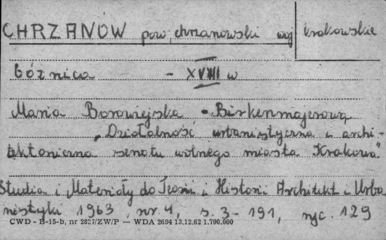 CHRZANÓW pow. chrzanowski woj krakowskie
bóżnica - XVIII w
Maria Borowiejska - Birkenmajerowa
"Działalność urbanistyczna i archi-
tektoniczna senatu wolnego miasta Krakowa"
Studia i Materiały do Teorii i Historii Architekt i Urba
nistyki 1963, nr. 4, s. 3-191, ryc. 129
CWD - B-15-b, nr 2827/ZW/P — WDA 2694 13.12.62 1.700.000